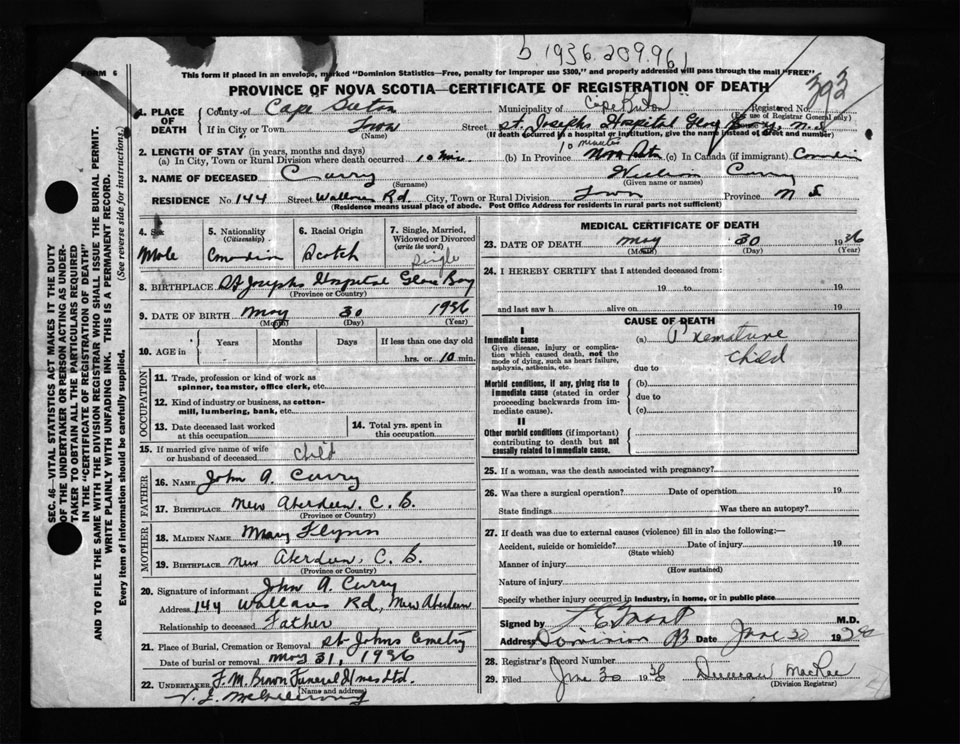 1936 209.961
393
FORM 6
This form if placed in an envelope, marked "Dominion Statistics—Free, penalty for improper use $300," and properly addressed will pass through the mail "FREE"
PROVINCE OF NOVA SCOTIA—CERTIFICATE OF REGISTRATION OF DEATH
1. PLACE OF DEATH
County of Cape Breton Municipality of Cape Breton Registered No.
(For use of Registrar General only)
If in City or Town Town Street St. Josephs Hospital Glace Bay, N.S.
(Name) (If death occurred in a hospital or institution, give the name instead of street and number)
2. LENGTH OF STAY (in years, months and days) 10 minutes
(a) In City, Town or Rural Division where death occurred 10 min. (b) In Province Nova Scotia (c) In Canada (if immigrant) Canadian
3. NAME OF DECEASED Curry Curry
(Surname) (Given name or names)
RESIDENCE No. 144 Street Wallace Rd. City, Town or Rural Division Town Province N S
(Residence means usual place of abode. Post Office Address for residents in rural parts not sufficient)
4. Sex
Male
5. Nationality
(Citizenship)
Canadian
6. Racial Origin
Scotch
7. Single, Married, Widowed or Divorced
(write the word)
Single
8. BIRTHPLACE St Josephs Hospital Glace Bay
(Province or Country)
9. DATE OF BIRTH May 30 1936
(Month) (Day) (Year)
10. AGE in Years Months Days If less than one day old
hrs. or 10 min.
OCCUPATION
11. Trade, profession or kind of work as
spinner, teamster, office clerk, etc.
12. Kind of industry or business, as cotton-
mill, lumbering, bank, etc.
13. Date deceased last worked
at this occupation
14. Total yrs. spent in
this occupation
15. If married give name of wife
or husband of deceased Child
FATHER
16. NAME John A. Curry
17. BIRTHPLACE New Aberdeen. C. B.
(Province or Country)
MOTHER
18. MAIDEN NAME Mary Flynn
19. BIRTHPLACE New Aberdeen, C. B.
(Province or Country)
20. Signature of informant John A. Curry
Address 144 Wallace Rd, New Aberdeen
Relationship to deceased Father
21. Place of Burial, Cremation or Removal St Johns Cemetry
Date of burial or removal May 31, 1936
22. UNDERTAKER F. M. Brown Funeral Homes Ltd.
(Name and address)
MEDICAL CERTIFICATE OF DEATH
23. DATE OF DEATH May 30 1936
(Month) (Day) (Year)
24. I HEREBY CERTIFY that I attended deceased from:
19 to 19
and last saw h alive on 19
CAUSE OF DEATH
I
Immediate cause
Give disease, injury or complication which caused death, not the mode of dying, such as heart failure, asphyxia, asthenia, etc.
(a) Premature
Child
due to
Morbid conditions, if any, giving rise to immediate cause (stated in order proceeding backwards from immediate cause).
(b)
due to
(c)
II
Other morbid conditions (if important) contributing to death but not causally related to immediate cause.
25. If a woman, was the death associated with pregnancy?
26. Was there a surgical operation? Date of operation 19
State findings Was there an autopsy?
27. If death was due to external causes (violence) fill in also the following:—
Accident, suicide or homicide? Date of injury 19
(State which)
Manner of injury
(How sustained)
Nature of injury
Specify whether injury occurred in industry, in home, or in public place
Signed by M.D.
Address Dominion Date June 30 19
28. Registrar's Record Number
29. Filed June 30 1936 Duncan MacRae
(Division Registrar)
SEC. 46—VITAL STATISTICS ACT MAKES IT THE DUTY
OF THE UNDERTAKER OR PERSON ACTING AS UNDER-
TAKER TO OBTAIN ALL THE PARTICULARS REQUIRED
IN THE "CERTIFICATE OF REGISTRATION OF DEATH"
AND TO FILE THE SAME WITH THE DIVISION REGISTRAR WHO SHALL ISSUE THE BURIAL PERMIT.
WRITE PLAINLY WITH UNFADING INK. THIS IS A PERMANENT RECORD.
Every item of information should be carefully supplied. (See reverse side for instructions.)